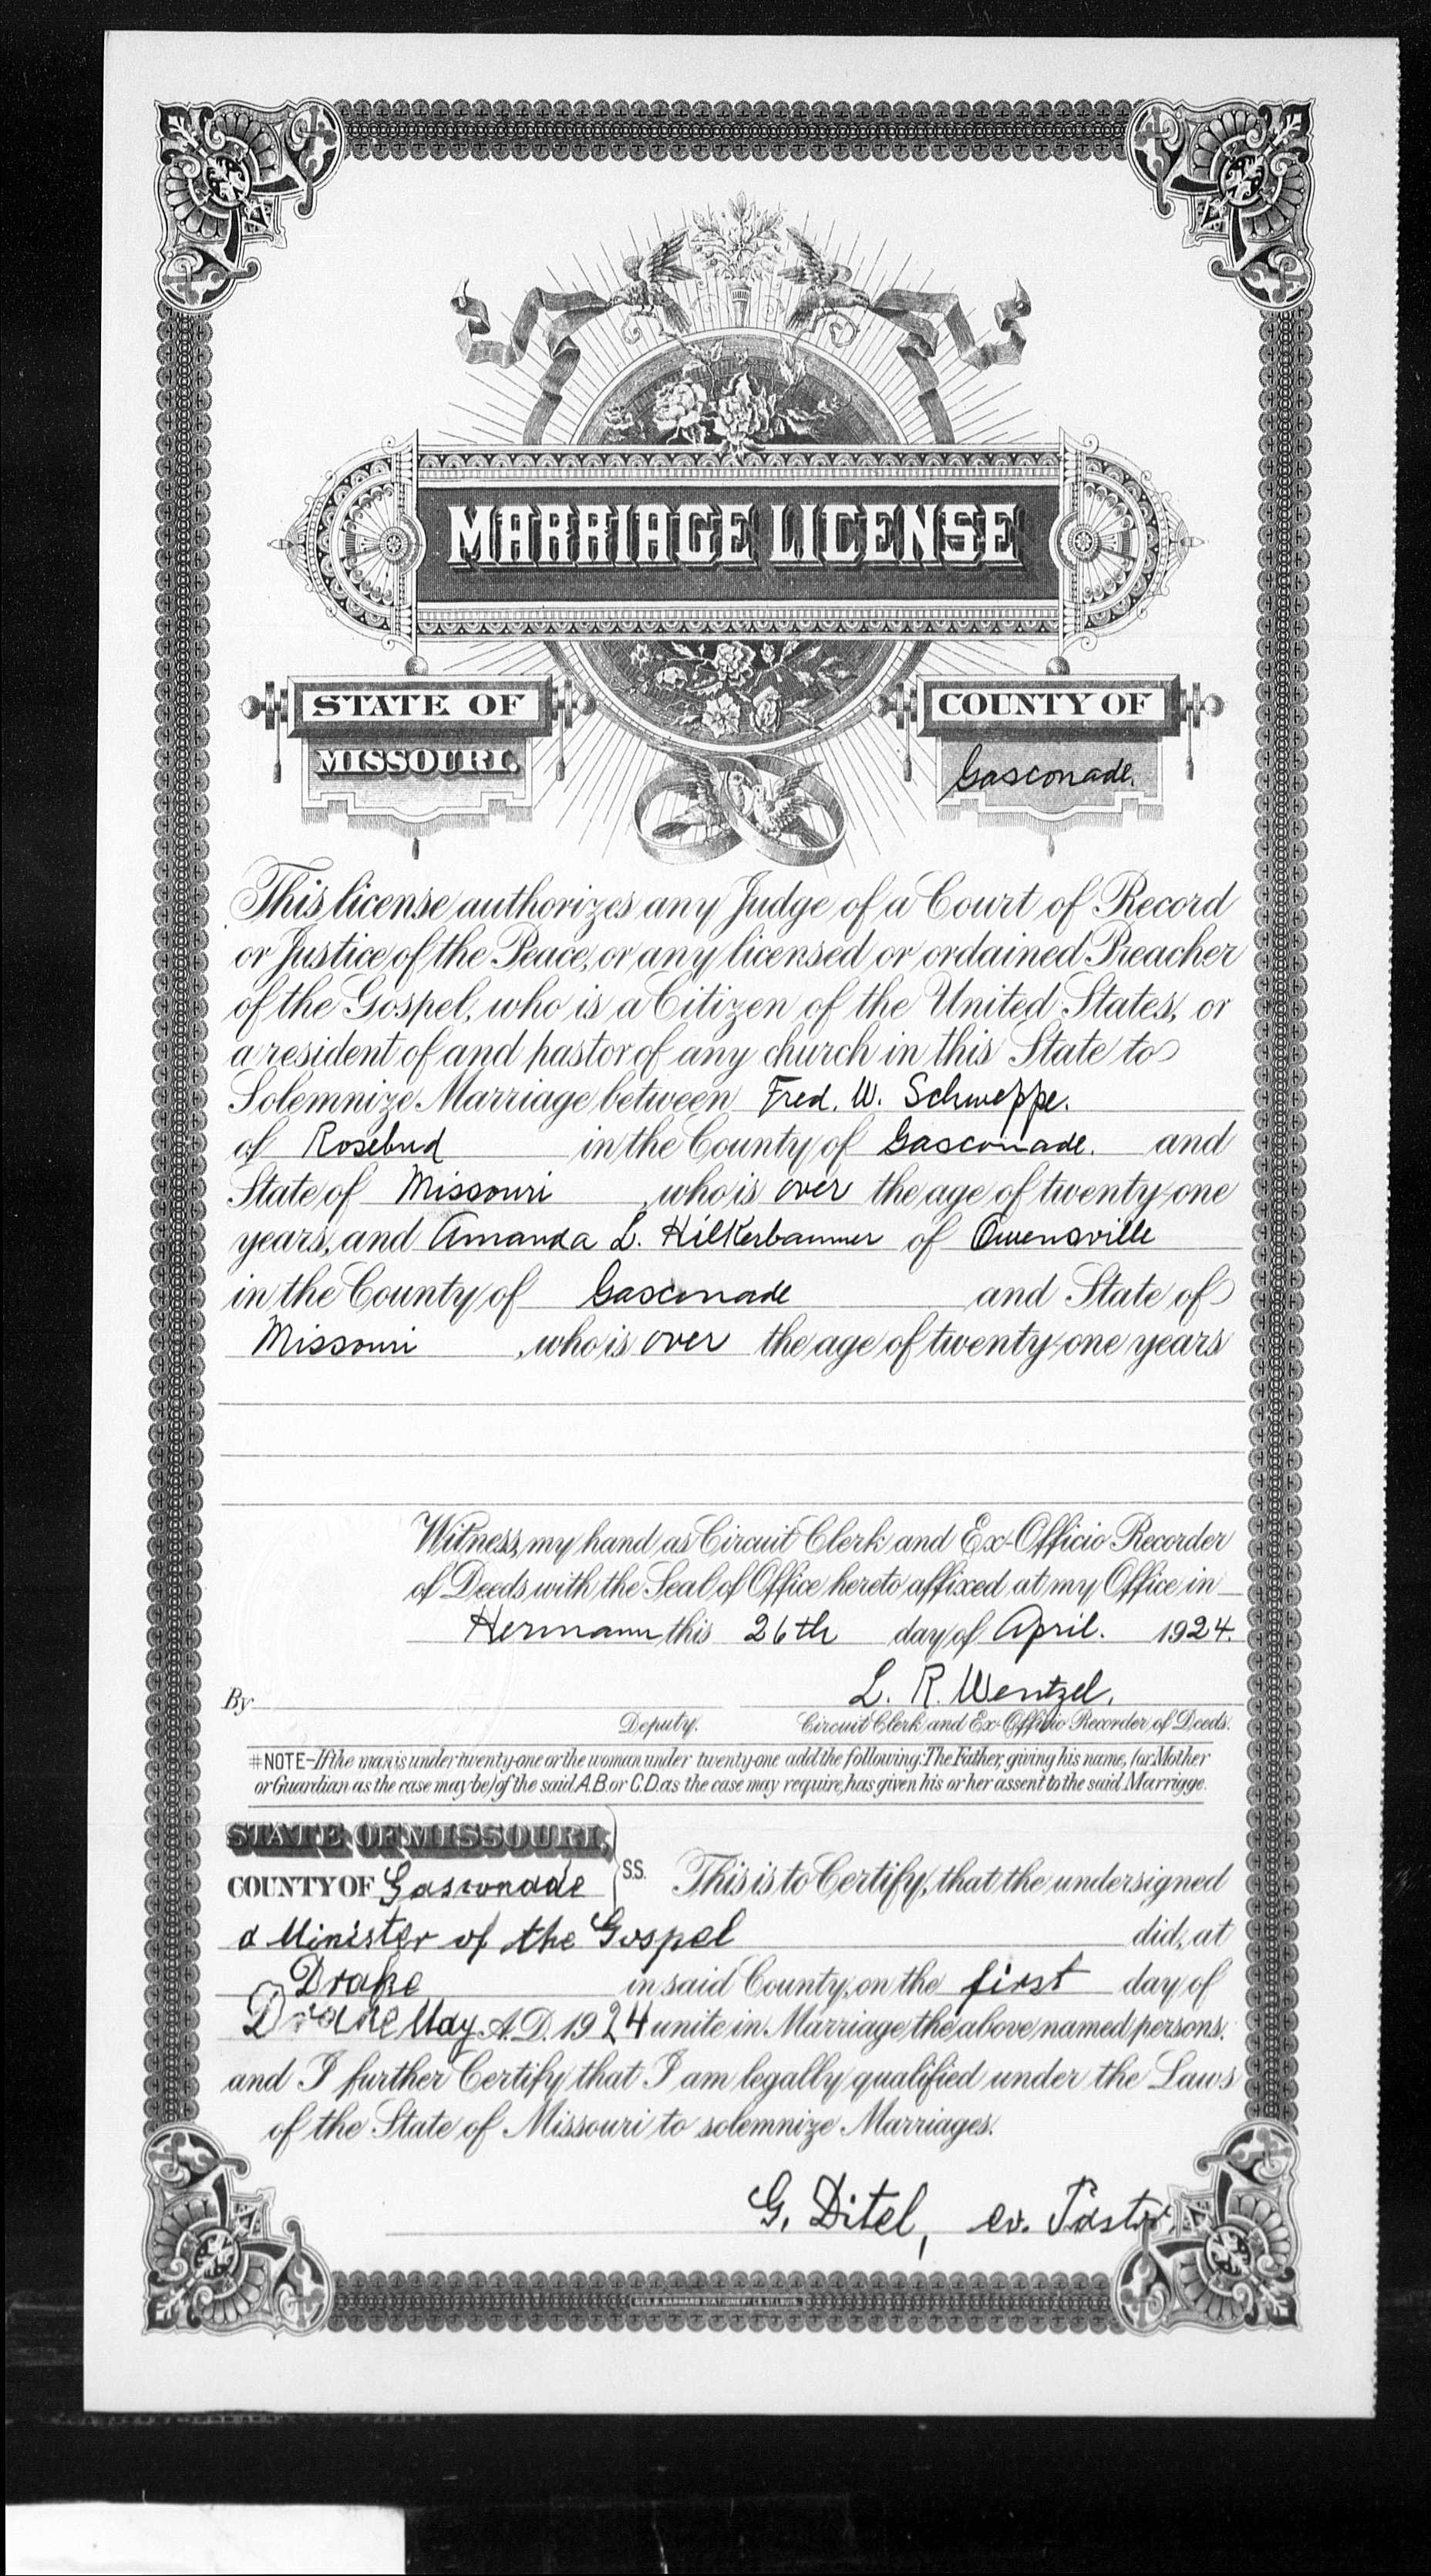 MARRIAGE LICENSE
STATE OF
MISSOURI.
COUNTY OF
Gasconade.
This license authorizes any Judge of a Court of Record
or Justice of the Peace, or any licensed or ordained Preacher
of the Gospel, who is a Citizen of the United States, or
a resident of and pastor of any church in this State to
Solemnize Marriage between Fred. W. Schweppe.
of Rosebud in the County of Gasconade. and
State of Missouri, who is over the age of twenty-one
years, and Amanda L. Hilkerbaumer of Owensville
in the County of Gasconade and State of
Missouri, who is over the age of twenty-one years
Witness, my hand as Circuit Clerk and Ex-Officio Recorder
of Deeds with the Seal of Office hereto affixed at my Office in
Hermann this 26th day of April. 1924.
By L. R. Wentzel,
Deputy. Circuit Clerk and Ex-Officio Recorder of Deeds.
‡NOTE-If the man is under twenty-one or the woman under twenty-one add the following: The Father, giving his name, (or Mother
or Guardian as the case may be) of the said A.B or C.D. as the case may require, has given his or her assent to the said Marrigge.
STATE OF MISSOURI,
COUNTY OF Gasconade SS. This is to Certify, that the undersigned
a Minister of the Gospel did, at
Drake in said County, on the first day of
Drake May A.D. 1924 unite in Marriage the above named persons.
and I further Certify that I am legally qualified under the Laws
of the State of Missouri to solemnize Marriages.
G. Ditel, ev. Pastor
GEO. D. BARNARD STATIONERY CO. ST. LOUIS.